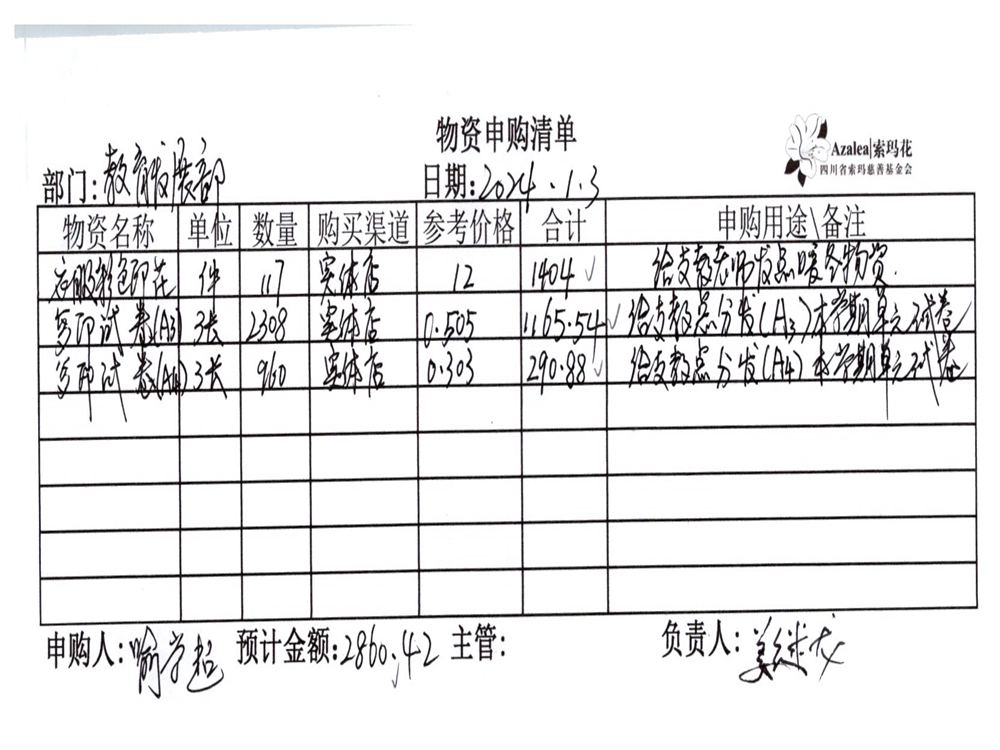 物资申购清单
Azalea|索玛花
四川省索玛慈善基金会
部门:教育发展部 日期:2024.1.3
物资名称 单位 数量 购买渠道 参考价格 合计 申购用途\备注
衣服 色印花 件 117 实体店 12 1404 ✓ 给支教老师发点暖冬物资.
复印试卷(A3) 张 2308 实体店 0.505 1165.54 ✓ 给支教点分发(A3)本学期单元试卷
复印试卷(A4) 张 960 实体店 0.303 290.88 ✓ 给支教点分发(A4)本学期单元试卷
申购人:喻学超 预计金额:2860.42 ✓ 主管: 负责人:姜继龙